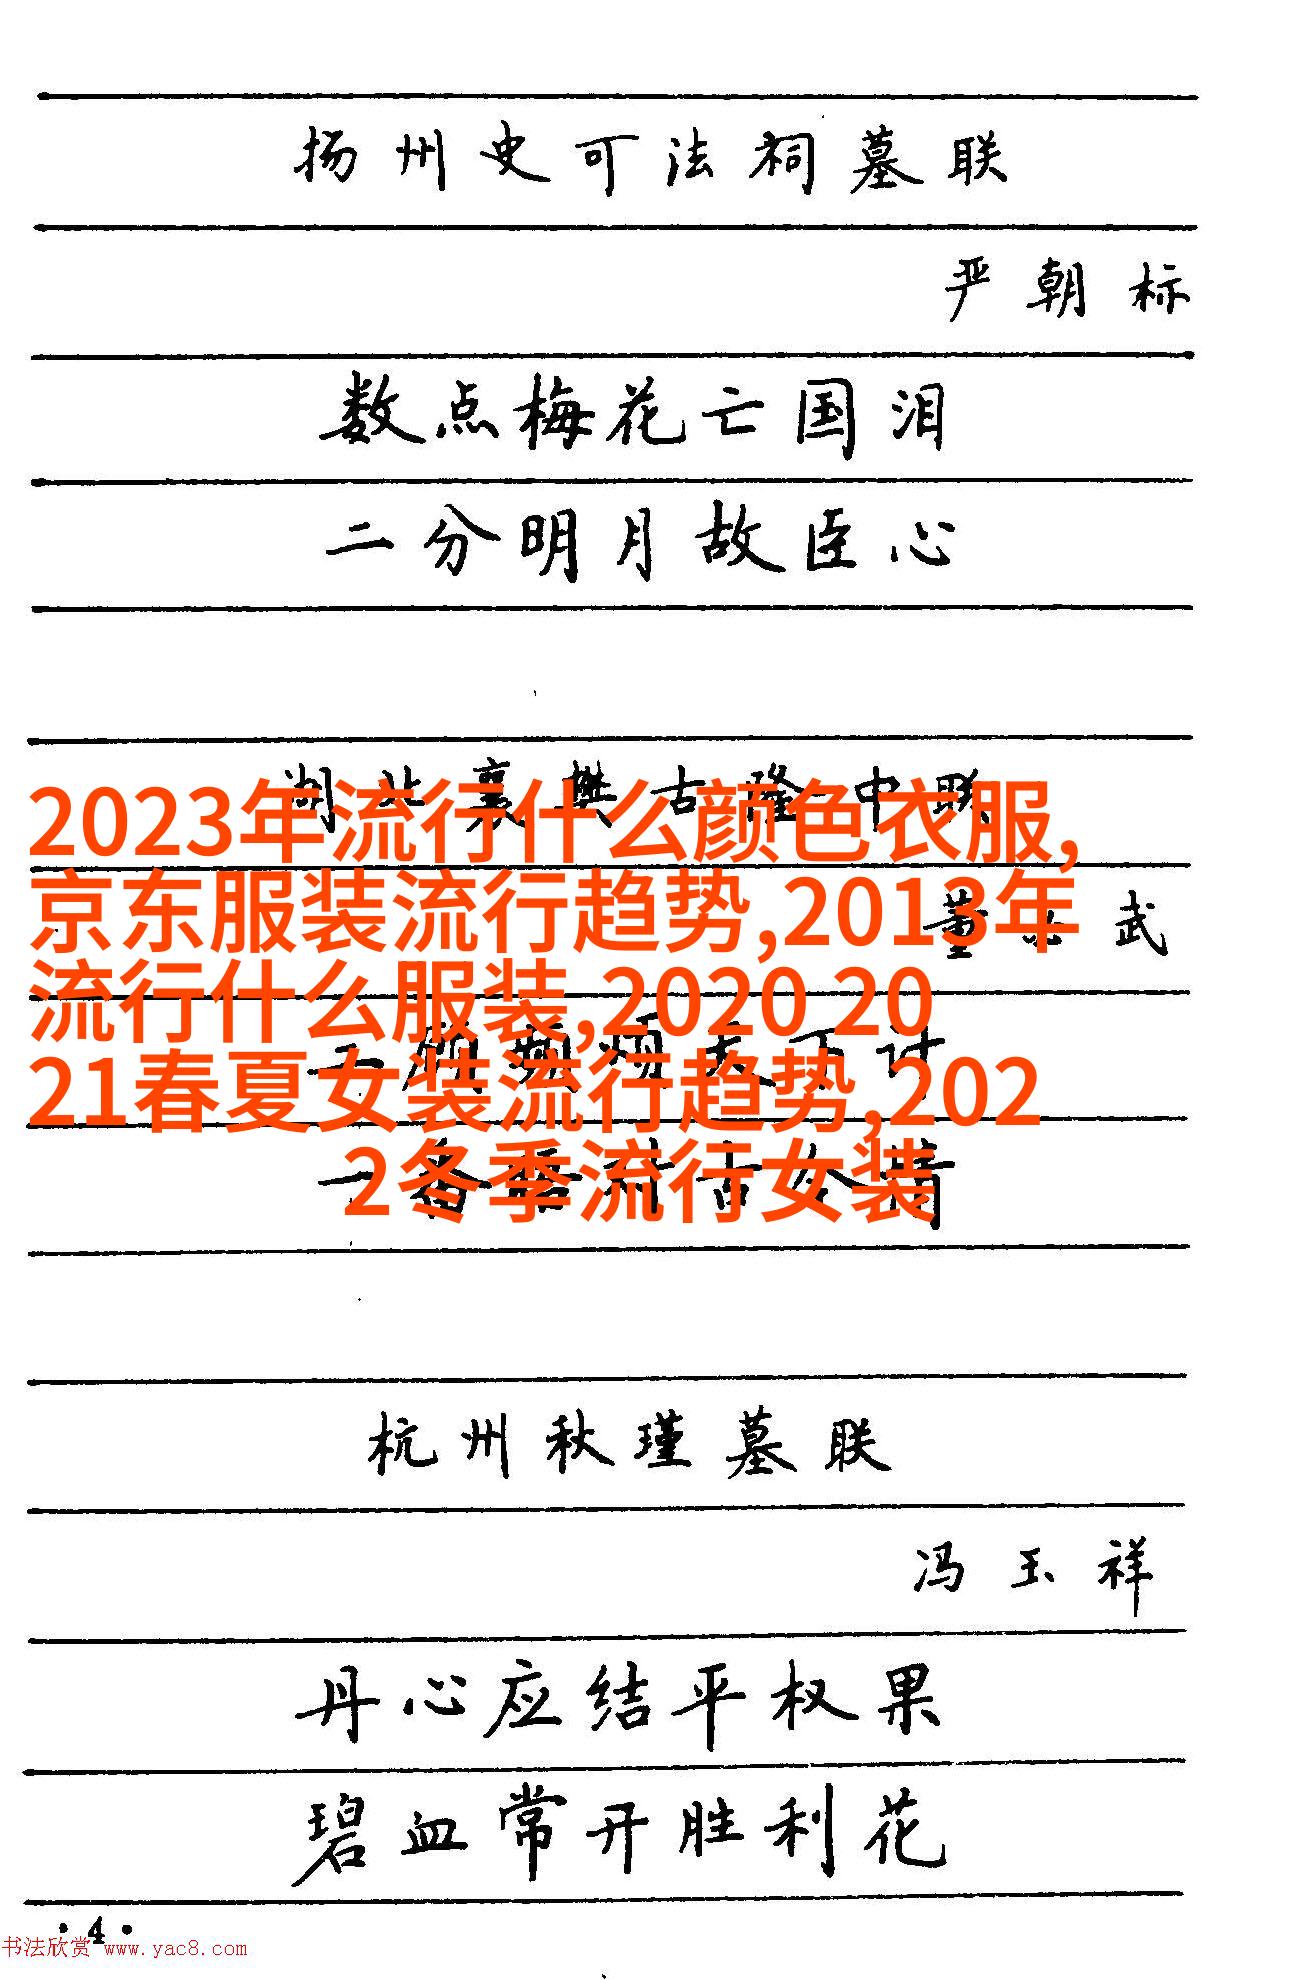 扬州史可法祠墓联
严朝标
数点梅花亡国泪
二分明月故臣心
湖北襄樊古隆中联
2023年流行什么颜色衣服,
董 武
京东服装流行趋势,2013年
流行什么服装,2020 20
顾频烦天下计
21春夏女装流行趋势,202
2冬季流行女装
杭州秋瑾墓联
冯玉祥
丹心应结平权果
碧血常开胜利花
·4·
书法欣赏 www.yac8.com